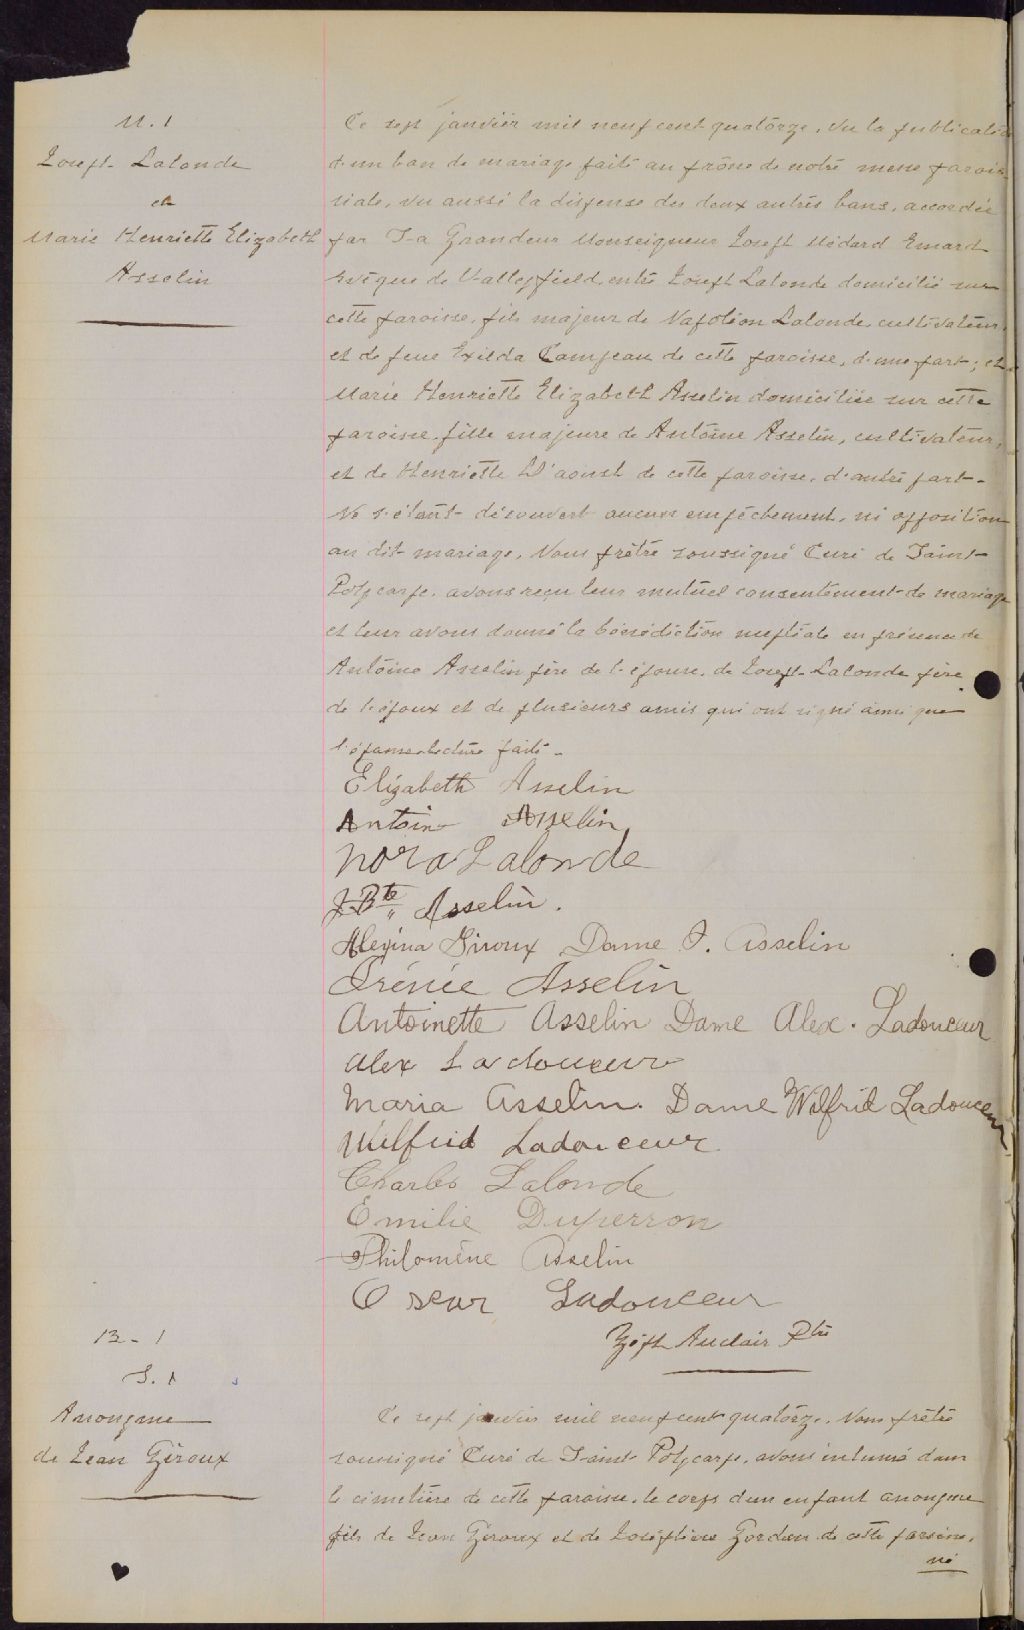 M. 1
Joseph Lalonde
et
Marie Henriette Elizabeth
Asselin
Ce sept janvier mil neuf cent quatorze, vu la publication
d'un ban de mariage faite au prône de notre messe parois-
siale, vu aussi la dispense des deux autres bans, accordée
par Sa Grandeur Monseigneur Joseph Médard Emard
Evêque de Valleyfield, entre Joseph Lalonde domicilié sur
cette paroisse, fils majeur de Napoléon Lalonde, cultivateur,
et de feue Exilda Campeau de cette paroisse, d'une part; et
Marie Henriette Elizabeth Asselin domiciliée sur cette
paroisse, fille majeure de Antoine Asselin, cultivateur,
et de Henriette D'aoust de cette paroisse, d'autre part.
Ne s'étant découvert aucun empêchement, ni opposition
au dit mariage, Nous prêtre soussigné Curé de Saint
Polycarpe, avons reçu leur mutuel consentement de mariage
et leur avons donné la bénédiction nuptiale en présence de
Antoine Asselin père de l'épouse, de Joseph Lalonde père
de l'époux et de plusieurs amis qui ont signé ainsi que
l'épouse. Lecture faite.
Elizabeth Asselin
Antoine Asselin
Nora Lalonde
J. Bte Asselin.
Alexina Giroux Dame I. Asselin
Irénée Asselin
Antoinette Asselin Dame Alex. Ladouceur
Alex Ladouceur
Maria Asselin. Dame Wilfrid Ladouceur
Wilfrid Ladouceur
Charles Lalonde
Emilie Duperron
Philomène Asselin
Oscar Ladouceur
Auclair Ptre
B-1
S. 1
Anonyme
de Jean Giroux
Ce sept janvier mil neuf cent quatorze, Nous prêtre
soussigné Curé de Saint Polycarpe, avons inhumé dans
le cimetière de cette paroisse, le corps d'un enfant anonyme
fils de Jean Giroux et de Joséphine Gordon de cette paroisse,
né